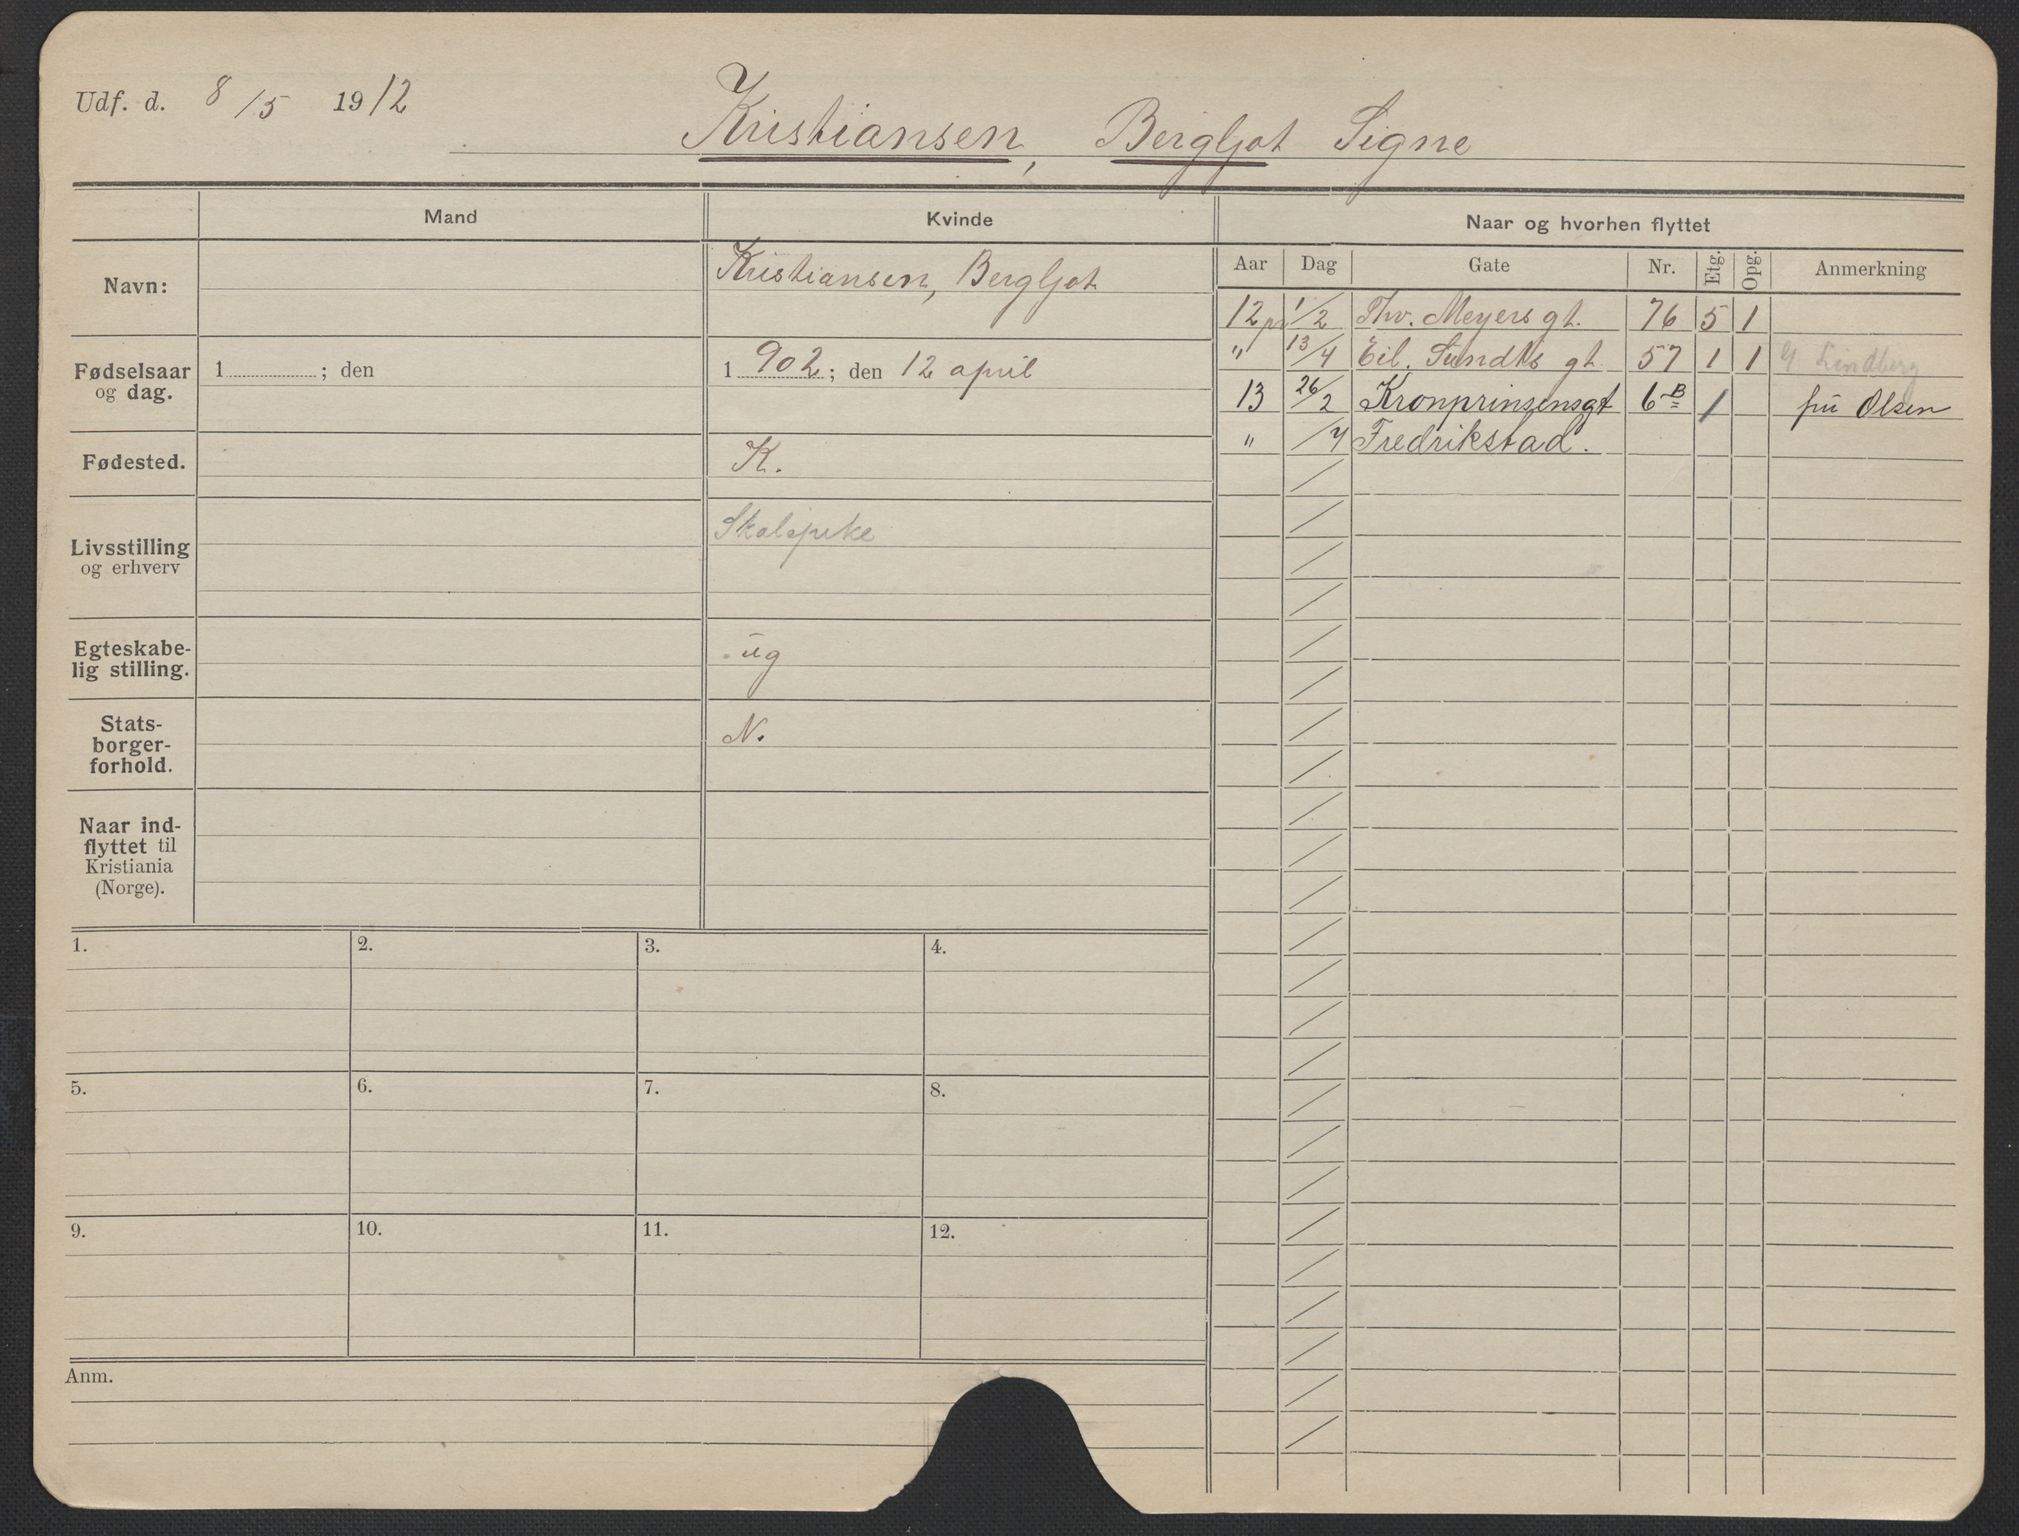 Udf. d. 8/5 1912
Kristiansen, Bergljot Signe
Mand
Kvinde
Naar og hvorhen flyttet
Aar Dag Gate Nr. Etg. Opg. Anmerkning
Navn:
Kristiansen, Bergljot
12 pr 1/2 Thv. Meyers gt. 76 5 1
" 13/4 Eil. Sundts gt. 57 1 1 Lindberg
13 26/2 Kronprinsensgt 6B 1 fru Olsen
" /4 Fredrikstad.
Fødselsaar
og dag.
1 ; den
1 902 ; den 12 april
Fødested.
K.
Livsstilling
og erhverv
Skolepike
Egteskabe-
lig stilling.
ug
Stats-
borger-
forhold.
N.
Naar ind-
flyttet til
Kristiania
(Norge).
1. 2. 3. 4.
5. 6. 7. 8.
9. 10. 11. 12.
Anm.